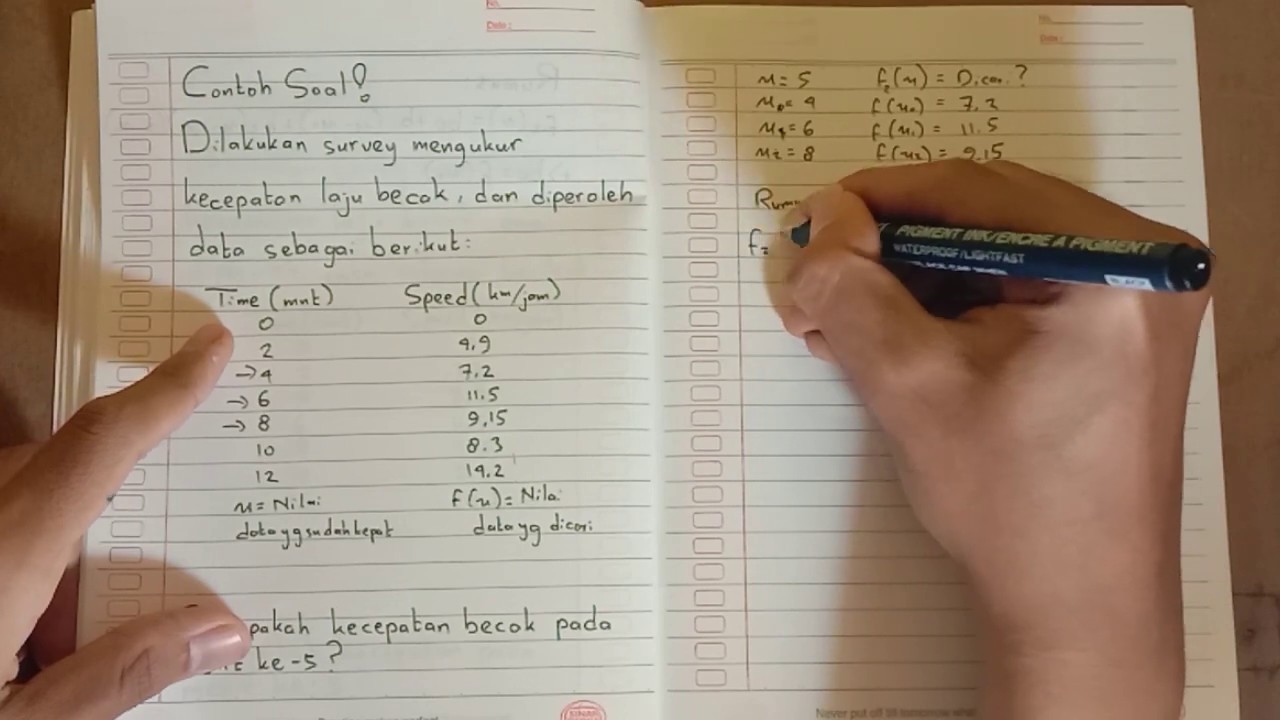 No.
Date :
Contoh Soal!
Dilakukan survey mengukur
kecepatan laju becak, dan diperoleh
data sebagai berikut:
Time (mnt) Speed (km/jam)
0 0
2 4,9
→4 7.2
→ 6 11.5
→ 8 9,15
10 8.3
12 14.2
x = Nilai f(x) = Nilai
data yg sudah tepat data yg dicari
pakah kecepatan becak pada
ke-5?
No.
Date :
x = 5 f₂(x) = Dicari ?
x₀= 4 f(x₀) = 7.2
x₁= 6 f(x₁) = 11.5
x₂ = 8 f(x₂) = 9,15
Rum
f₂
PIGMENT INK/ENCRE A PIGMENT
WATERPROOF/LIGHTFAST
BLACK
Never put off till tomorrow what